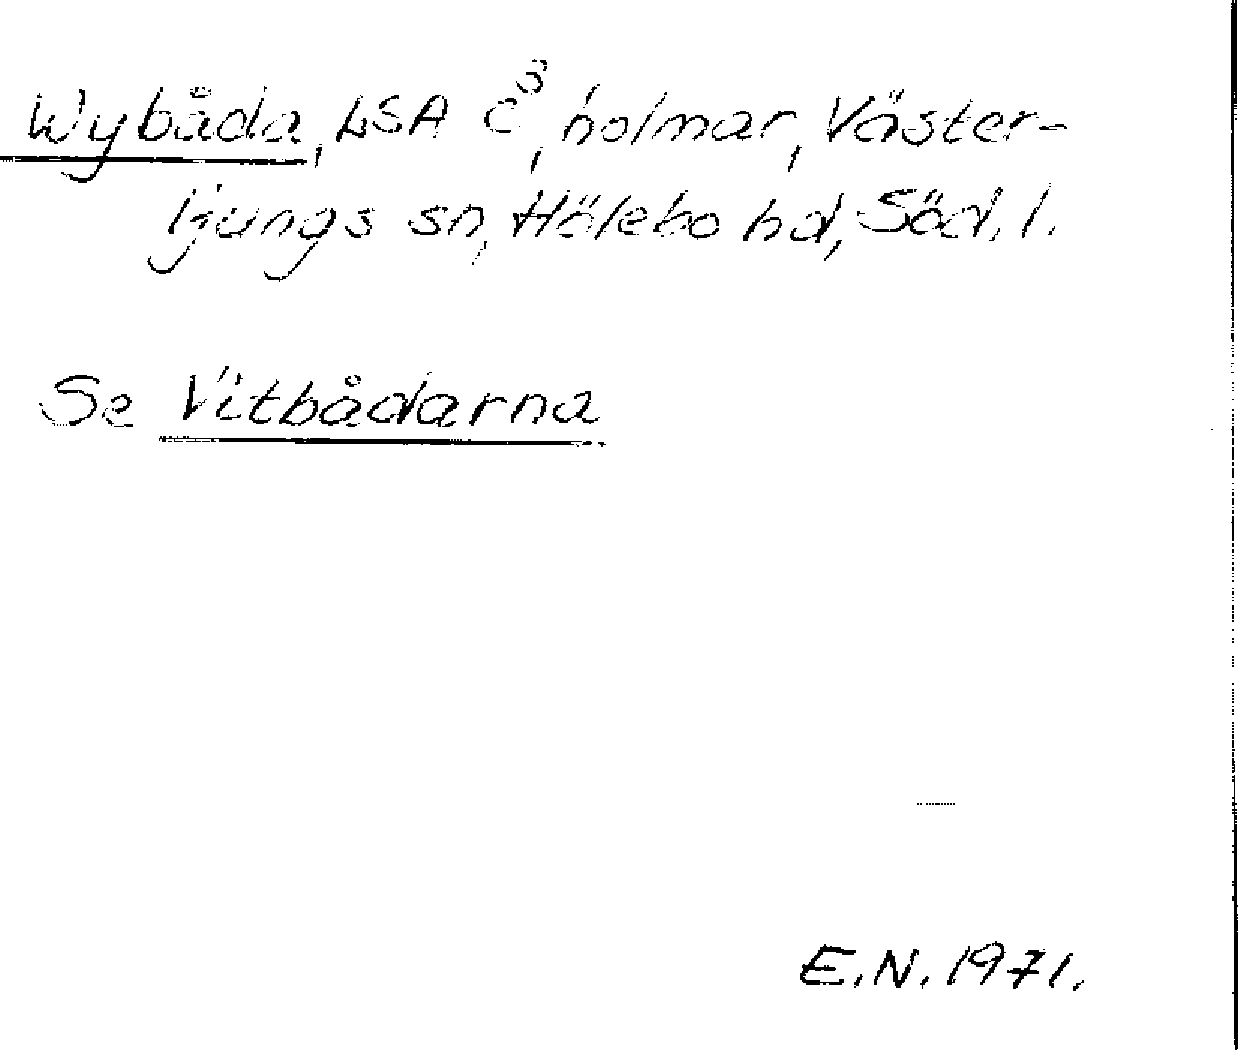 Wybåda, LSA C⁵, holmar, Väster-
ljungs sn, Hölebo hd, Söd. l.
Se Vitbådarna
E.N. 1971.